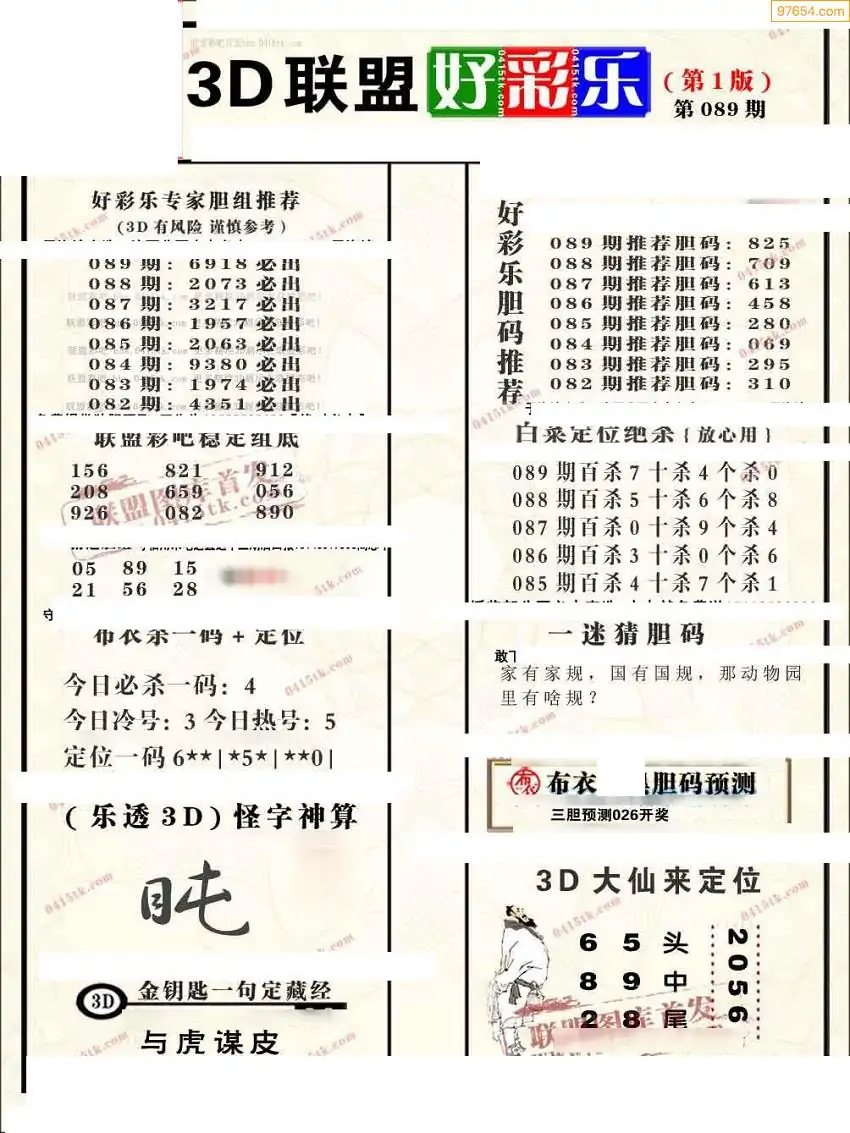 97654.com
3D联盟好彩乐(第1版)
第089期
好彩乐专家胆组推荐
(3D有风险 谨慎参考)
089期：6918必出
088期：2073必出
087期：3217必出
086期：1957必出
085期：2063必出
084期：9380必出
083期：1974必出
082期：4351必出
联盟彩吧稳定组底
156 821 912
208 659 056
926 082 890
05 89 15
21 56 28
布衣杀一码+定位
今日必杀一码：4
今日冷号：3 今日热号：5
定位一码 6**|*5*|**0|
(乐透3D)怪字神算
3D 金钥匙一句定藏经
与虎谋皮
好彩乐胆码推荐
089期推荐胆码：825
088期推荐胆码：709
087期推荐胆码：613
086期推荐胆码：458
085期推荐胆码：280
084期推荐胆码：069
083期推荐胆码：295
082期推荐胆码：310
白菜定位绝杀{放心用}
089期百杀7十杀4个杀0
088期百杀5十杀6个杀8
087期百杀0十杀9个杀4
086期百杀3十杀0个杀6
085期百杀4十杀7个杀1
一迷猜胆码
家有家规，国有国规，那动物园
里有啥规？
布衣 胆码预测
三胆预测026开奖
3D大仙来定位
6 5 头
8 9 中
2 8 尾
2056
联盟图库首发
0415tk.com